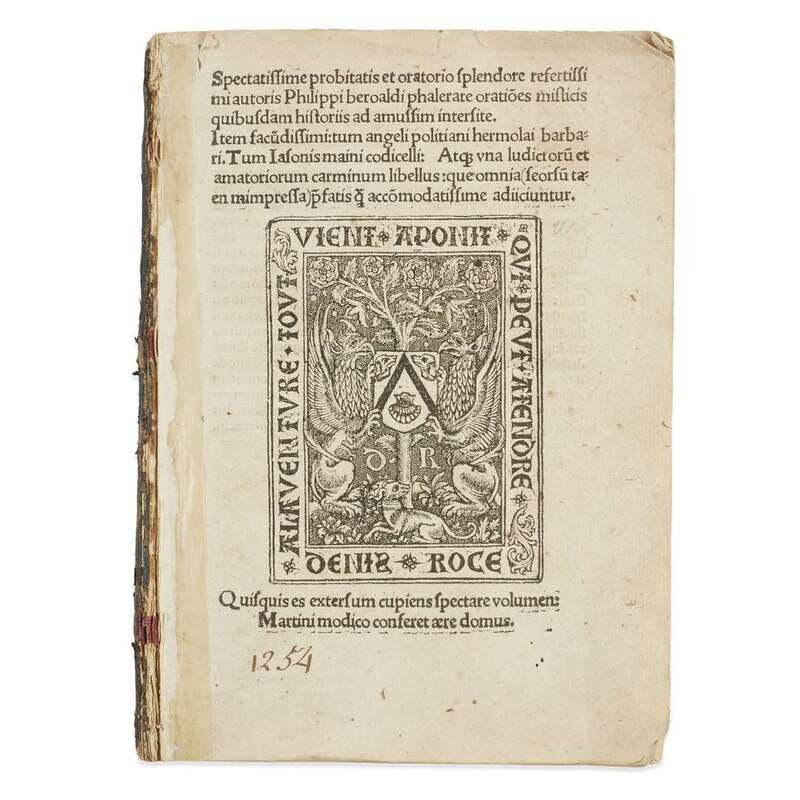 Spectatiſſime probitatis et oratorio ſplendore refertiſſi
mi autoris Philippi beroaldi phalerate oratiões miſticis
quibuſdam hiſtoriis ad amuſſim interſite.
Item facūdiſſimi: tum angeli politiani hermolai barba-
ri. Tum Iaſonis maini codicelli: Atq; vna ludictorū et
amatoriorum carminum libellus: que omnia (ſeorſū ta-
en mimpreſſa) p̄fatis q̄ accōmodatiſſime adiiciuntur.
ALAVENTURE TOUT
VIENT APONIT
QVI PEVT ATENDRE
D R
DENIS ROCE
Quiſquis es exterſum cupiens ſpectare volumen:
Martini modico conferet ære domus.
1254